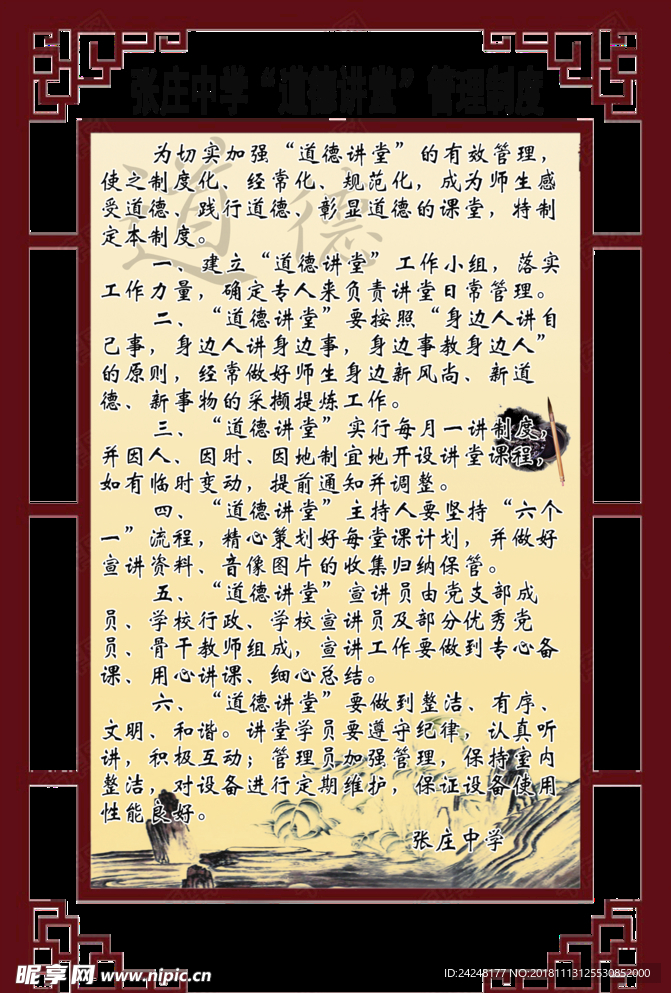 张庄中学“道德讲堂”管理制度
道德
为切实加强“道德讲堂”的有效管理，
使之制度化、经常化、规范化，成为师生感
受道德、践行道德、彰显道德的课堂，特制
定本制度。
一、建立“道德讲堂”工作小组，落实
工作力量，确定专人来负责讲堂日常管理。
二、“道德讲堂”要按照“身边人讲自
己事，身边人讲身边事，身边事教身边人”
的原则，经常做好师生身边新风尚、新道
德、新事物的采撷提炼工作。
三、“道德讲堂”实行每月一讲制度，
并因人、因时、因地制宜地开设讲堂课程，
如有临时变动，提前通知并调整。
四、“道德讲堂”主持人要坚持“六个
一”流程，精心策划好每堂课计划，并做好
宣讲资料、音像图片的收集归纳保管。
五、“道德讲堂”宣讲员由党支部成
员、学校行政、学校宣讲员及部分优秀党
员、骨干教师组成，宣讲工作要做到专心备
课、用心讲课、细心总结。
六、“道德讲堂”要做到整洁、有序、
文明、和谐。讲堂学员要遵守纪律，认真听
讲，积极互动；管理员加强管理，保持室内
整洁，对设备进行定期维护，保证设备使用
性能良好。
张庄中学
昵享网 www.nipic.cn
ID:24248177 NO:20181113125530852000